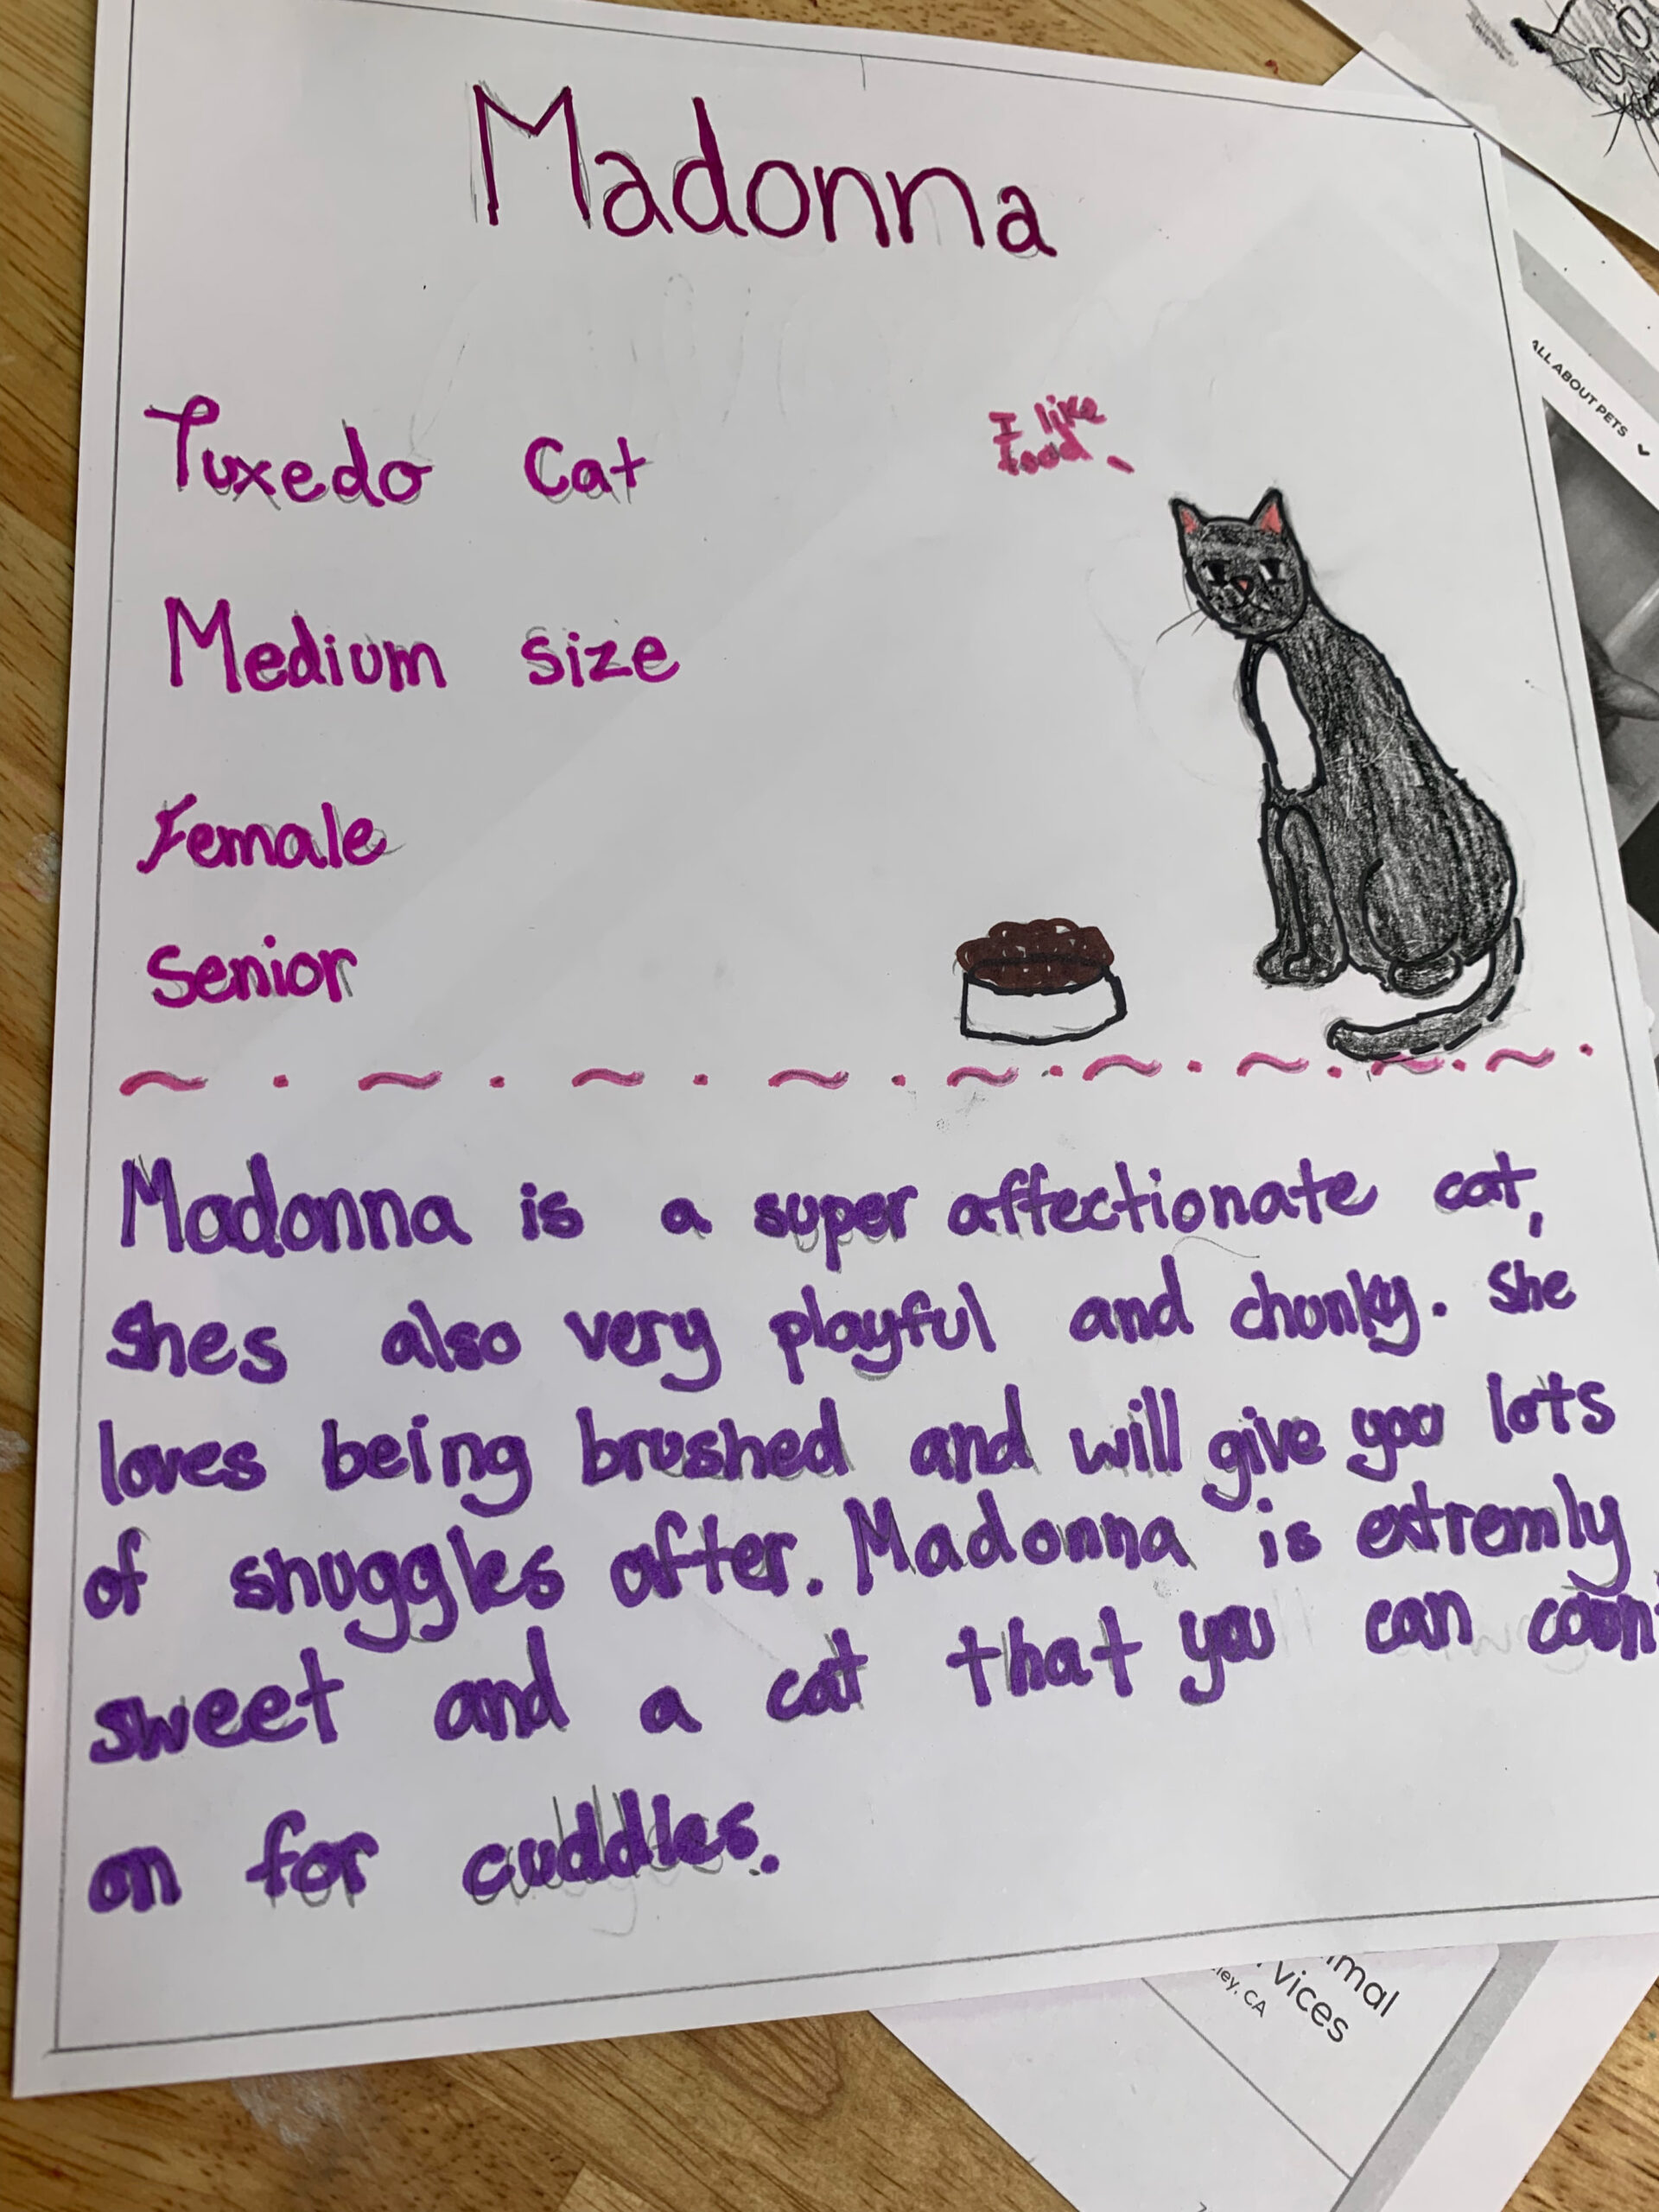 Madonna
Tuxedo Cat
I like
food
Medium size
Female
Senior
Madonna is a super affectionate cat,
shes also very playful and chunky. She
loves being brushed and will give you lots
of snuggles after. Madonna is extremly
sweet and a cat that you can count
on for cuddles.
ALL ABOUT PETS
vices
CA